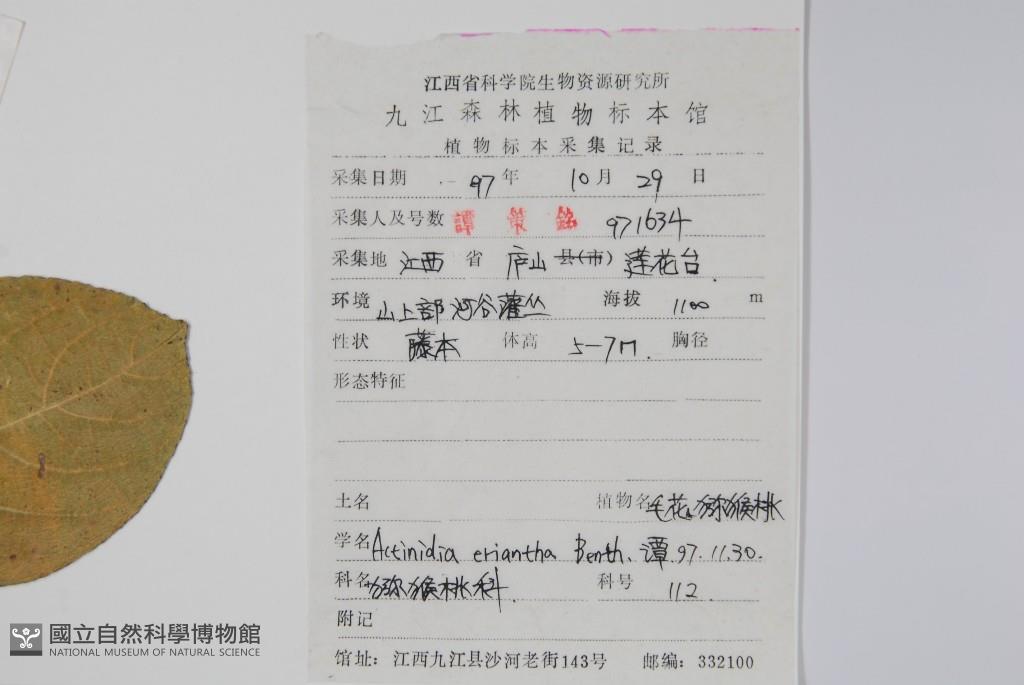 江西省科学院生物资源研究所
九江森林植物标本馆
植物标本采集记录
采集日期 97年 10月 29日
采集人及号数 譚策銘 971634
采集地 江西 省 庐山 县(市) 莲花台
环境 山上部河谷灌丛 海拔 1100 m
性状 藤本 体高 5-7m. 胸径
形态特征
土名 植物名 毛花猕猴桃
学名 Actinidia eriantha Benth. 譚.97.11.30.
科名 猕猴桃科. 科号 112.
附记
馆址：江西九江县沙河老街143号 邮编：332100
國立自然科學博物館
NATIONAL MUSEUM OF NATURAL SCIENCE